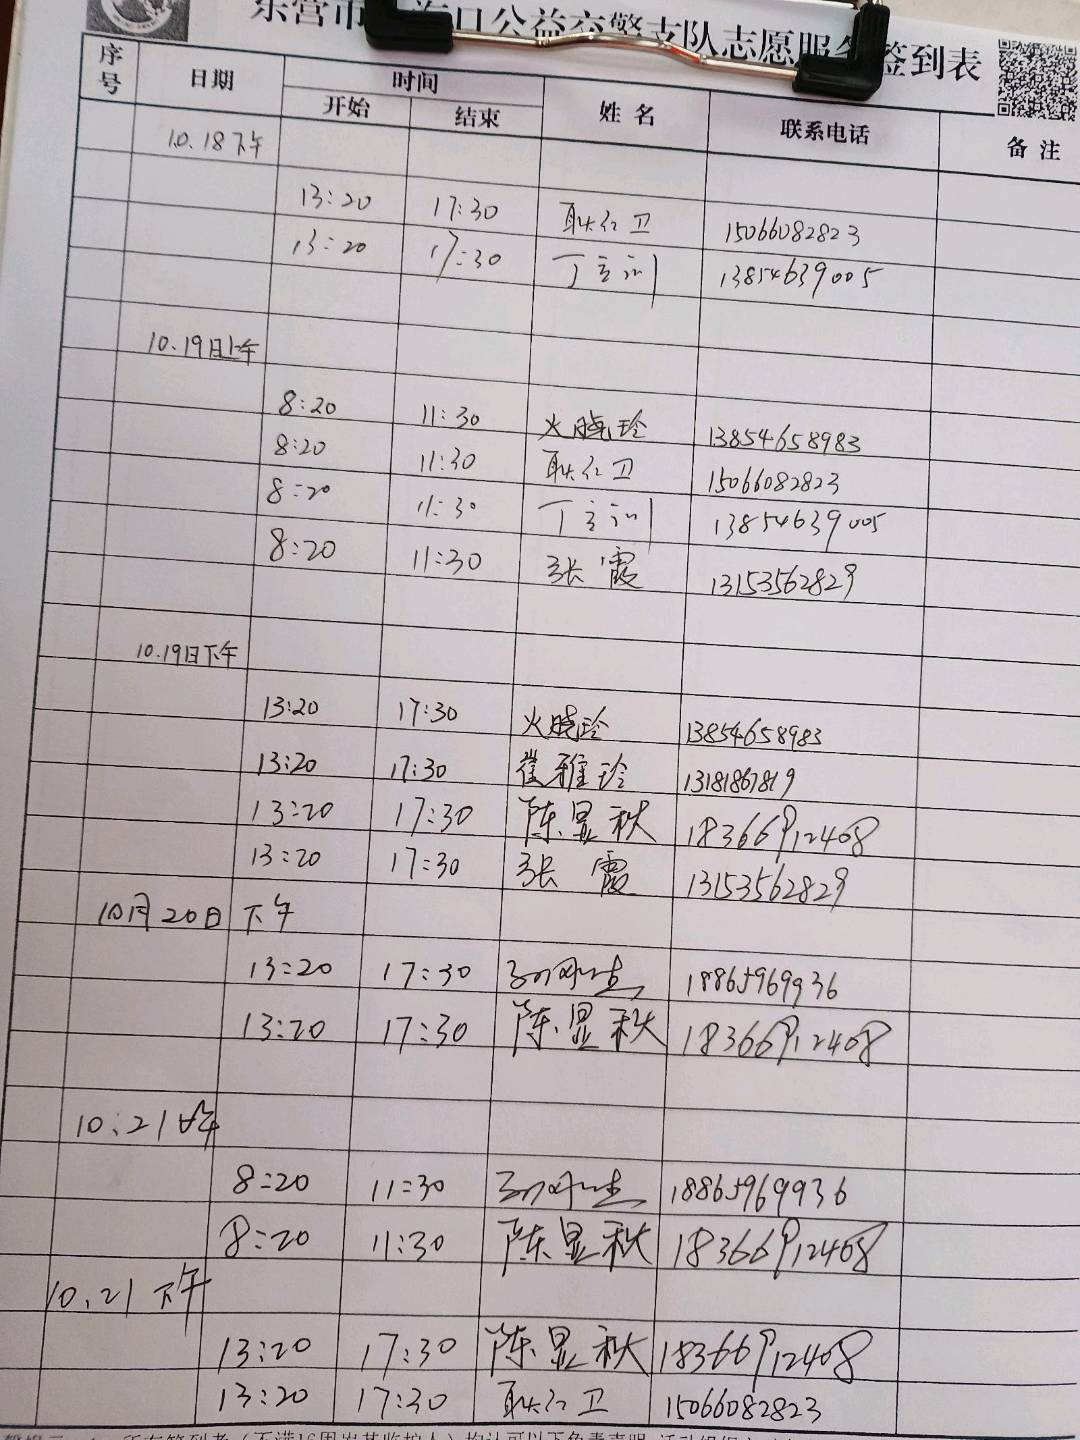 东营市 海口公益交警支队志愿服务签到表
序号 日期 时间 开始 结束 姓 名 联系电话 备 注
10.18下午
13:20 17:30 耿红卫 15066082823
13:20 17:30 丁立训 13854639005
10.19日上午
8:20 11:30 火晓玲 13854658983
8:20 11:30 耿红卫 15066082823
8:20 11:30 丁立训 13854639005
8:20 11:30 张霞 13153562829
10.19日下午
13:20 17:30 火晓玲 13854658983
13:20 17:30 崔雅玲 13181867819
13:20 17:30 陈显秋 18366912408
13:20 17:30 张霞 13153562829
10月20日 下午
13:20 17:30 18865969936
13:20 17:30 陈显秋 18366912408
10.21上午
8:20 11:30 18865969936
8:20 11:30 陈显秋 18366912408
10.21 下午
13:20 17:30 陈显秋 18366912408
13:20 17:30 耿红卫 15066082823